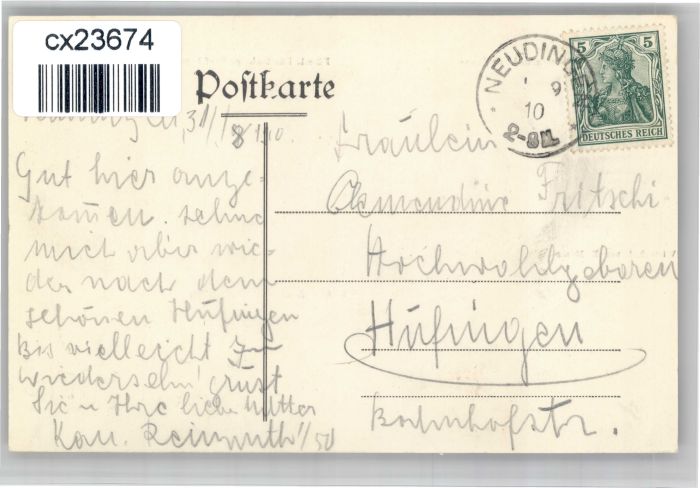 cx23674
Postkarte
5 5
DEUTSCHES REICH
NEUDING
9
10
2-8N.
31/8 10.
Gut hier ange-
komen. sehne
mich aber wie-
der nach dem
schönen Hüfingen
bis vielleicht
wiedersehn! grüst
Sie u Ihre liebe Mutter
Reinmuth
Fräulein
Fritschi
Hochwohlgeboren
Hüfingen
Bahnhofstr.